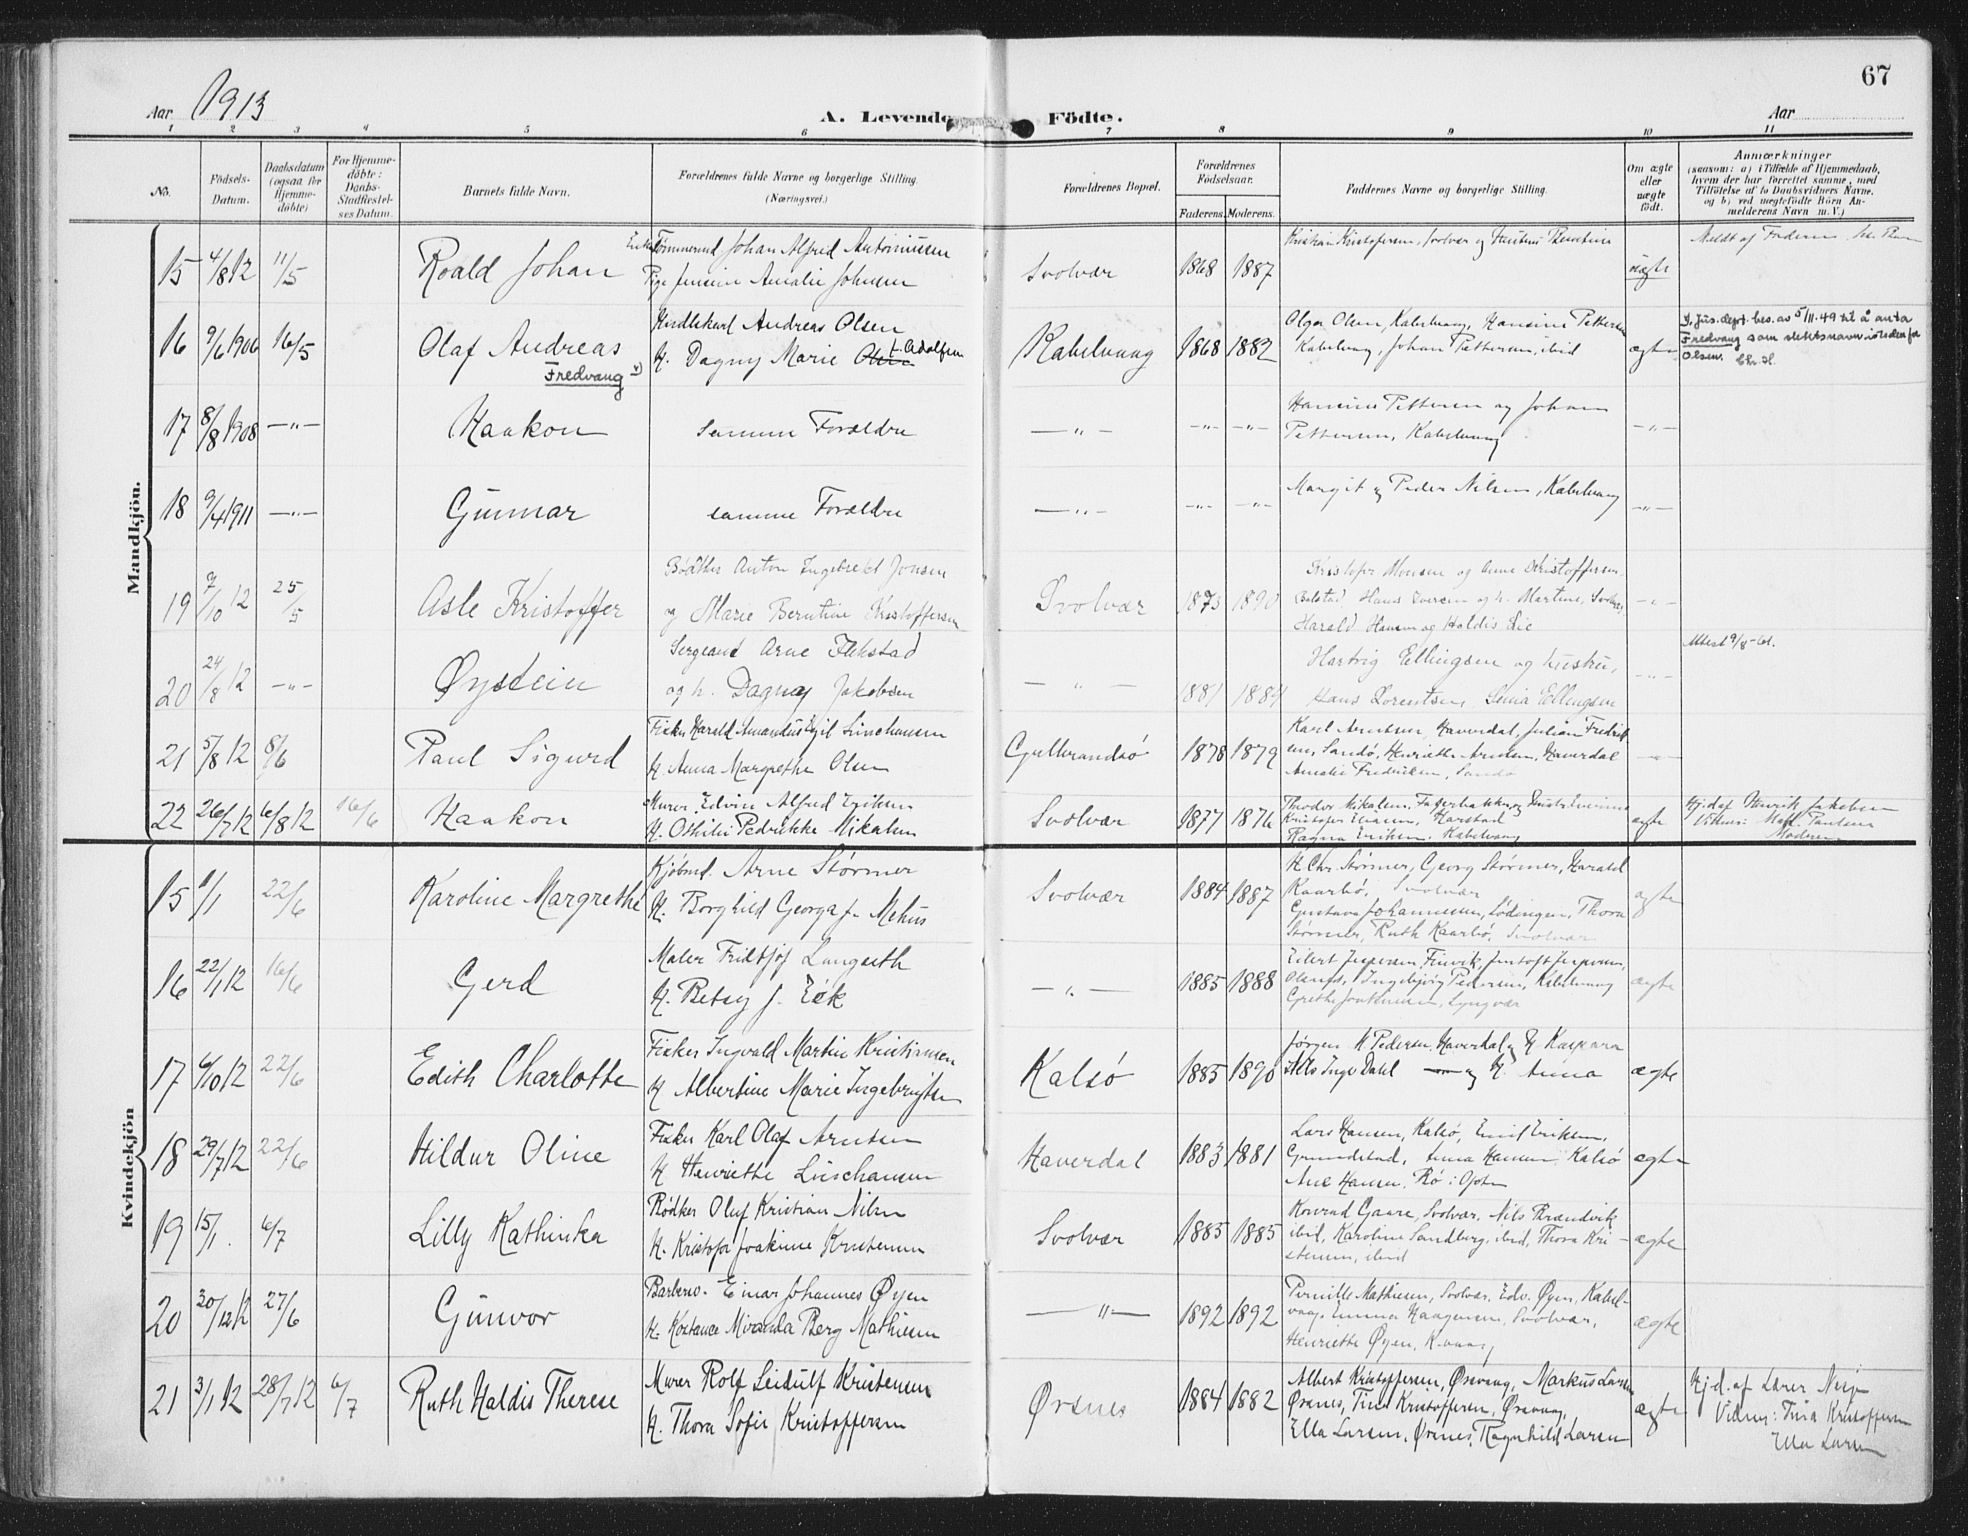 67
Aar 1913
A. Levende Födte.
Aar
1 2 3 4 5 6 7 8 9 10 11
No.
Födsels-Datum.
Daabsdatum (ogsaa for Hjemme-döbte)
For Hjemme-döbte: Daabs-Stadfæstel-ses Datum.
Barnets fulde Navn.
Forældrenes fulde Navne og borgerlige Stilling.
(Næringsvei.)
Forældrenes Bopæl.
Forældrenes Födselsaar.
Faderens. Moderens.
Faddernes Navne og borgerlige Stilling.
Om ægte eller uægte födt.
Anmærkninger
(saasom: a) i Tilfælde af Hjemmedaab, hvem der har forrettet samme, med Tilföielse af to Daabsvidners Navne, og b) ved uægtefödte Börn An-melderens Navn m. V.)
Mandkjön.
15 4/8 12 11/5 Roald Johan Enkem. Tømmermd Johan Alfred Antonussen
Pige Jensine Amalie Johnsen Svolvær 1868 1887 Kristian Kristofersen, Svolvær og Hustru uægte Meldt af Faderen
16 9/6 1906 16/5 Olaf Andreas Handlekarl Andreas Olsen
Fredvang H. Dagny Marie Olsen f. Adolfsen Kabelvaag 1868 1882 Olga Olsen, Kabelvaag, Hansine Pettersen
Kabelvaag, Johan Pettersen, ibid ægte J. Jus.dept. bes. av 5/11.49 til å anta
Fredvang som slektsnavn istedenfor
Olsen.
17 8/8 1908 —„— Haakon samme Forældre —„— —„— —„— Hansine Pettersen og Johan
Pettersen, Kabelvaag —„—
18 9/4 1911 —„— Gunnar samme Forældre —„— —„— —„— Margit og Peder Nilsen, Kabelvaag —„—
19 7/10 12 25/5 Asle Kristoffer Bødker Anton Ingebrekt Jonsen
og Marie Berntine Kristoffersen Svolvær 1873 1890 Kristofer Monsen og Anne Kristoffersen
Hans Iversen og h. Martine, Svolvær,
Harald Hansen og Haldis Lie —„—
20 24/8 12 —„— Øystein Sergeant Arne Flakstad
og h. Dagny Jakobsen —„— 1881 1884 Hartvig Ellingsen og hustru,
Hans Lorentsen, Senia Ellingsen —„— Attest 9/8-61.
21 5/8 12 8/6 Paul Sigurd Fisker Harald Amandus Egil Linchausen
H. Anna Margrethe Olsen Gulbrandsø 1878 1879 Karl Arntsen, Haverdal, Julian Fredrik-
sen, Sandø, Henriette Arntsen, Haverdal
Amalie Fredriksen, Sandø —„—
22 26/7 12 6/8 12 16/6 Haakon Murer Edvin Alfred Eriksen
H. Othilie Pedrikke Mikalsen Svolvær 1877 1876 Theodor Mikalsen,
Kristofer Harstad
Ragna Eriksen, Kabelvaag ægte Hjd af Henrik Jakobsen
Vidner: Paulsen
Moderen
Kvindekjön
15 1/1 22/6 Karoline Margrethe Kjøbmd. Arne Størmer
H. Borghild Georga f. Mehus Svolvær 1884 1887 H. Chr. Størmer, Georg Størmer, Harald
Kaarbø, Svolvær
Gustava Johannessen, Lødingen, Thora
Størmer, Ruth Kaarbø, Svolvær ægte
16 22/1 12 16/6 Gerd Maler Fridtjof Langseth
H. Betsy f. Eek —„— 1885 1888 Eilert Jespersen,
Ingebjørg Pedersen, Kabelvaag
Lyngvær ægte
17 6/10 12 22/6 Edith Charlotte Fisker Ingvald Martin Kristiansen
H. Albertine Marie Ingebrigtsen Kalsø 1885 1890 Jørgen M Pedersen, Haverdal og H. Kaspara
Nils Inge Dahl og H. Anna ægte
18 29/7 12 22/6 Hildur Oline Fisker Karl Olaf Arntsen
H Henriette Linchausen Haverdal 1883 1881 Lars Hansen, Kalsø, Emil Eriksen,
Grundstad, Anna Hansen Kalsø
Ane Hansen, ægte
19 15/1. 6/7 Lilly Kathinka Bødker Oluf Kristian Nilsen
H. Kristofa Joakime Kristensen Svolvær 1885 1885 Konrad Gaare, Svolvær, Nils Brændvik
ibid, Karoline Sandberg, ibid, Thora Kri-
stensen, ibid ægte
20 30/12 12 27/6 Gunvor Barberer Einar Johannes Øyen
H. Kostance Miranda Berg Mathisen —„— 1892 1892 Pernille Mathisen, Svolvær, Edv. Øyen, Kabel-
vaag, Emma Haagensen, Svolvær,
Henriette Øyen, K.vaag ægte
21 3/1 12 28/7 12 6/7 Ruth Haldis Therese Murer Rolf Leidulf Kristensen
H. Thora Sofie Kristoffersen Ørsnes 1884 1882 Albert Kristoffersen, Ørsvaag, Markus Larsen
Ørsnes, Tina Kristoffersen, Ørsvaag,
Ella Larsen, Ørsnes, Ragnhild Larsen ægte Hjd. af Lærer
Vidner: Tina Kristoffersen
Ella Larsen